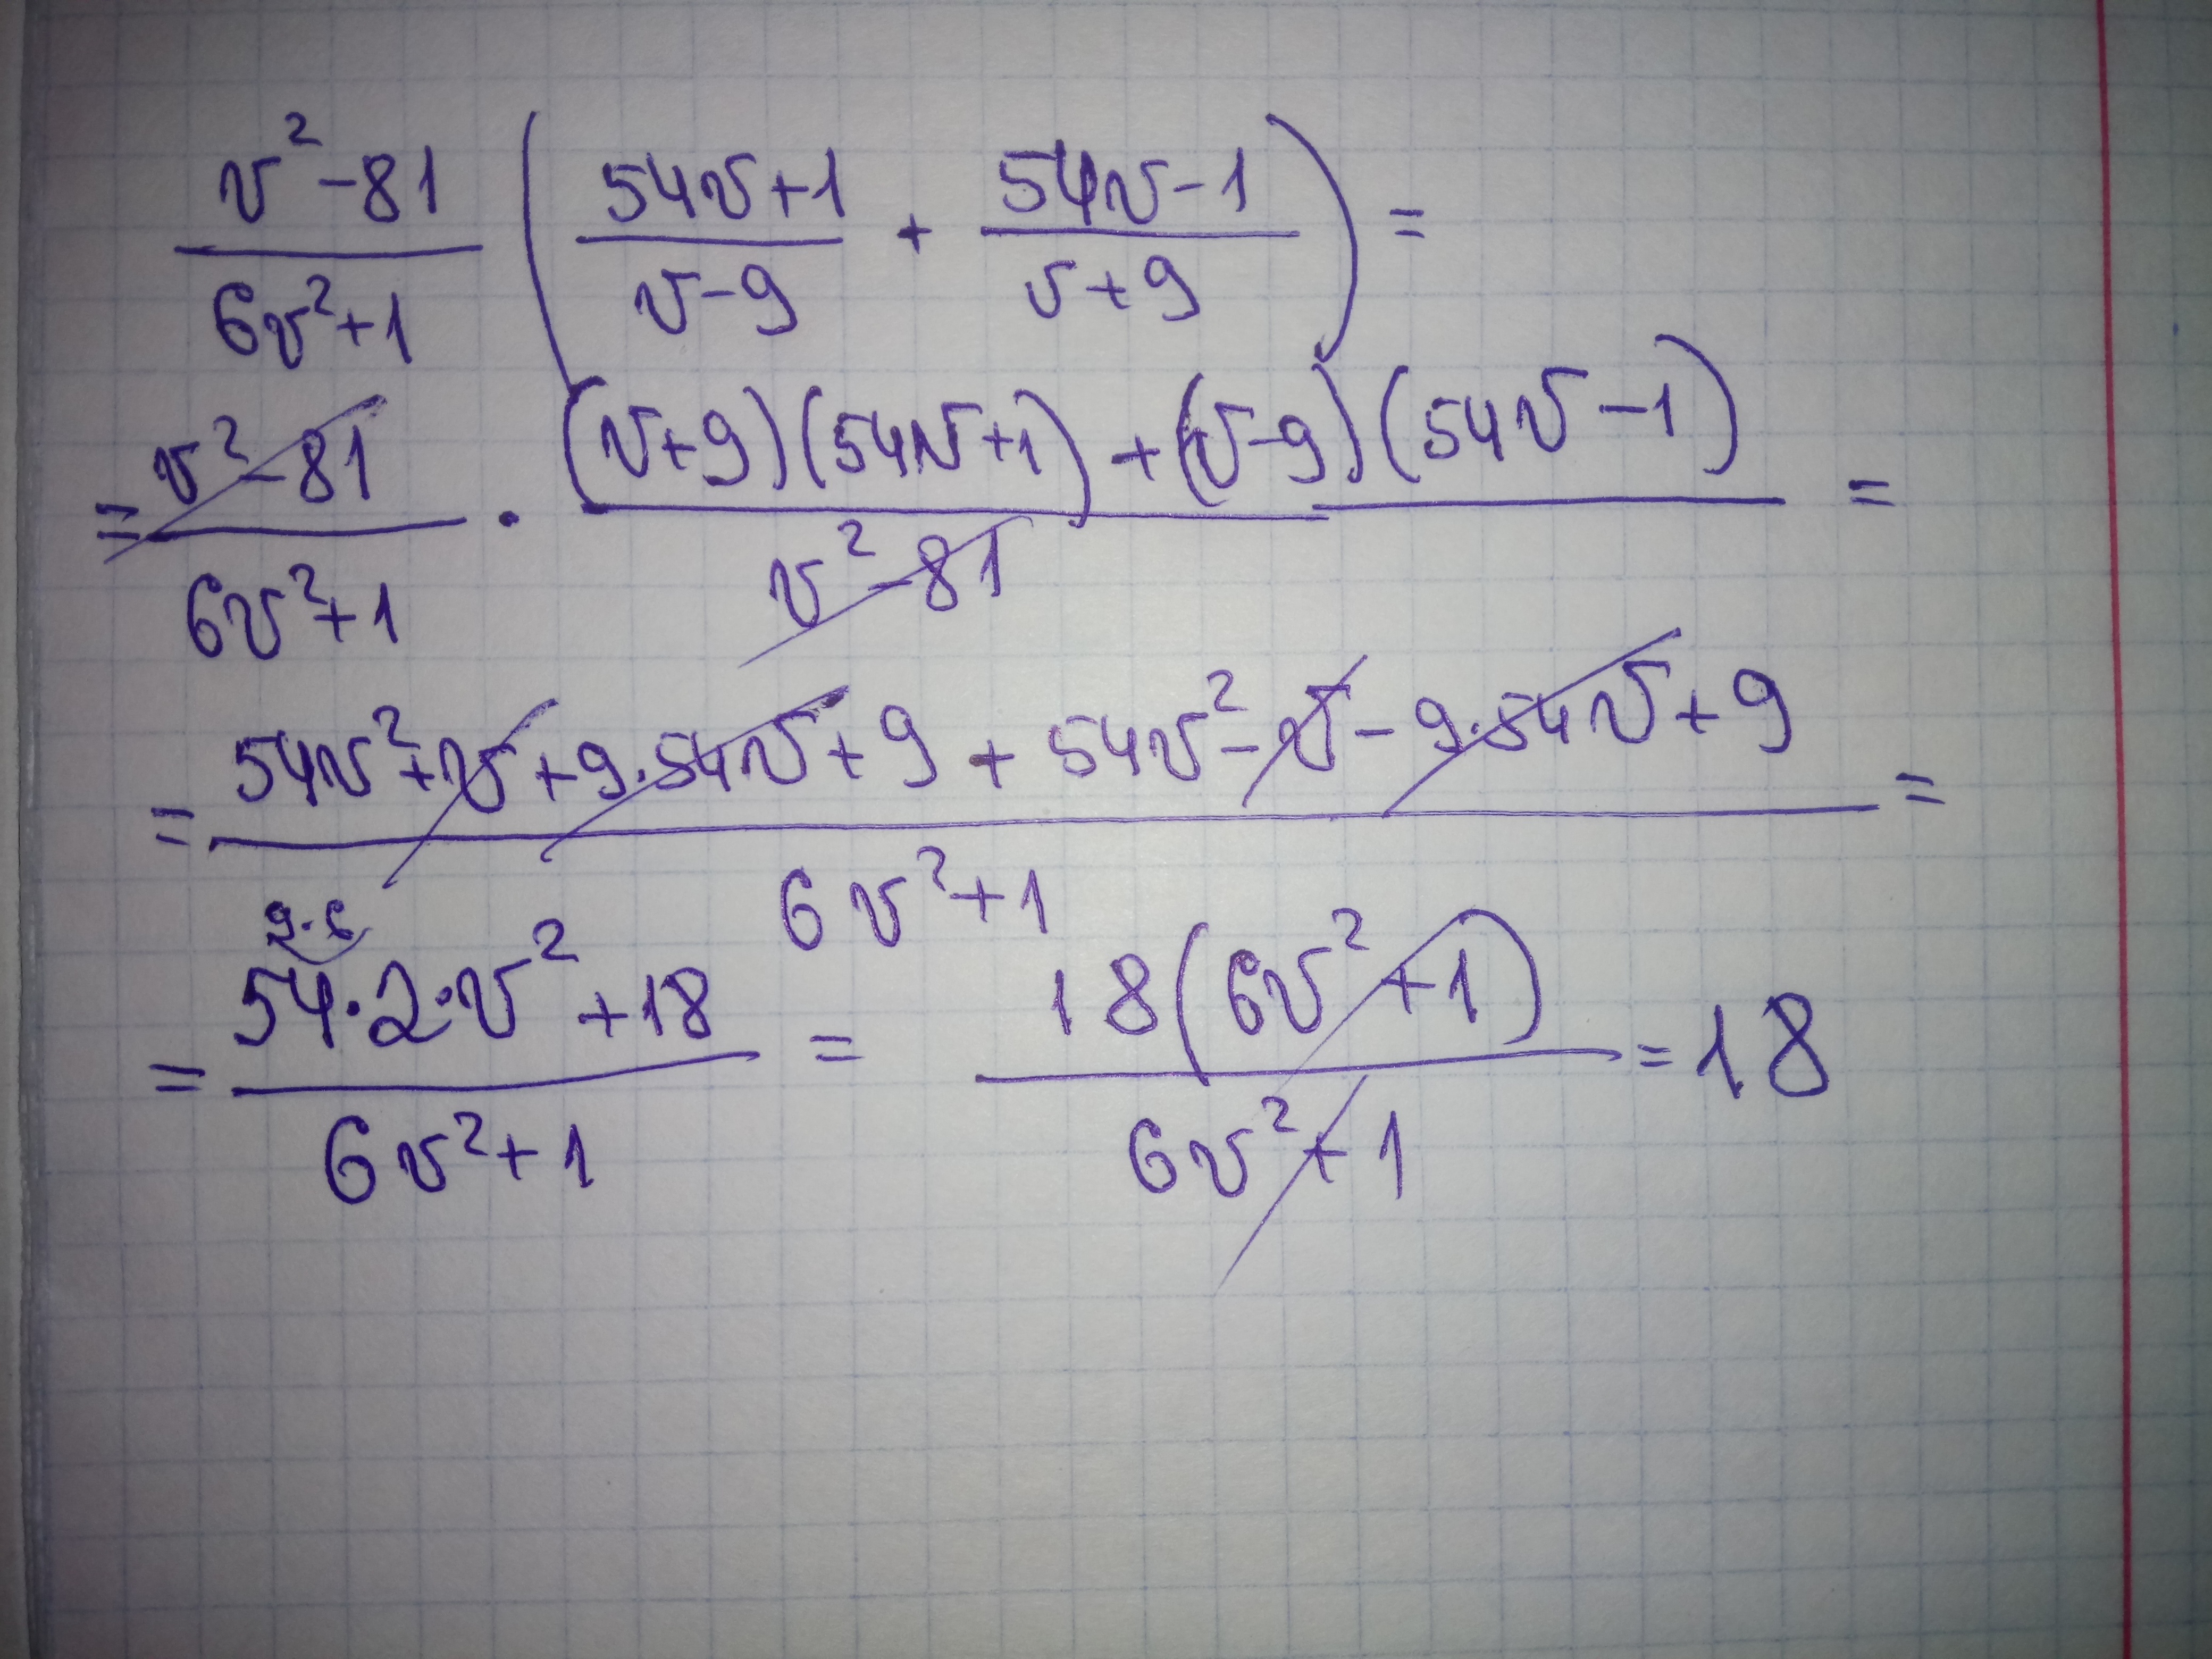 (v² - 81)/(6v² + 1) ((54v + 1)/(v - 9) + (54v - 1)/(v + 9)) =
= (v² - 81)/(6v² + 1) · ((v + 9)(54v + 1) + (v - 9)(54v - 1))/(v² - 81) =
= (54v² + v + 9·54v + 9 + 54v² - v - 9·54v + 9)/(6v² + 1) =
9·6
= (54·2·v² + 18)/(6v² + 1) = 18(6v² + 1)/(6v² + 1) = 18